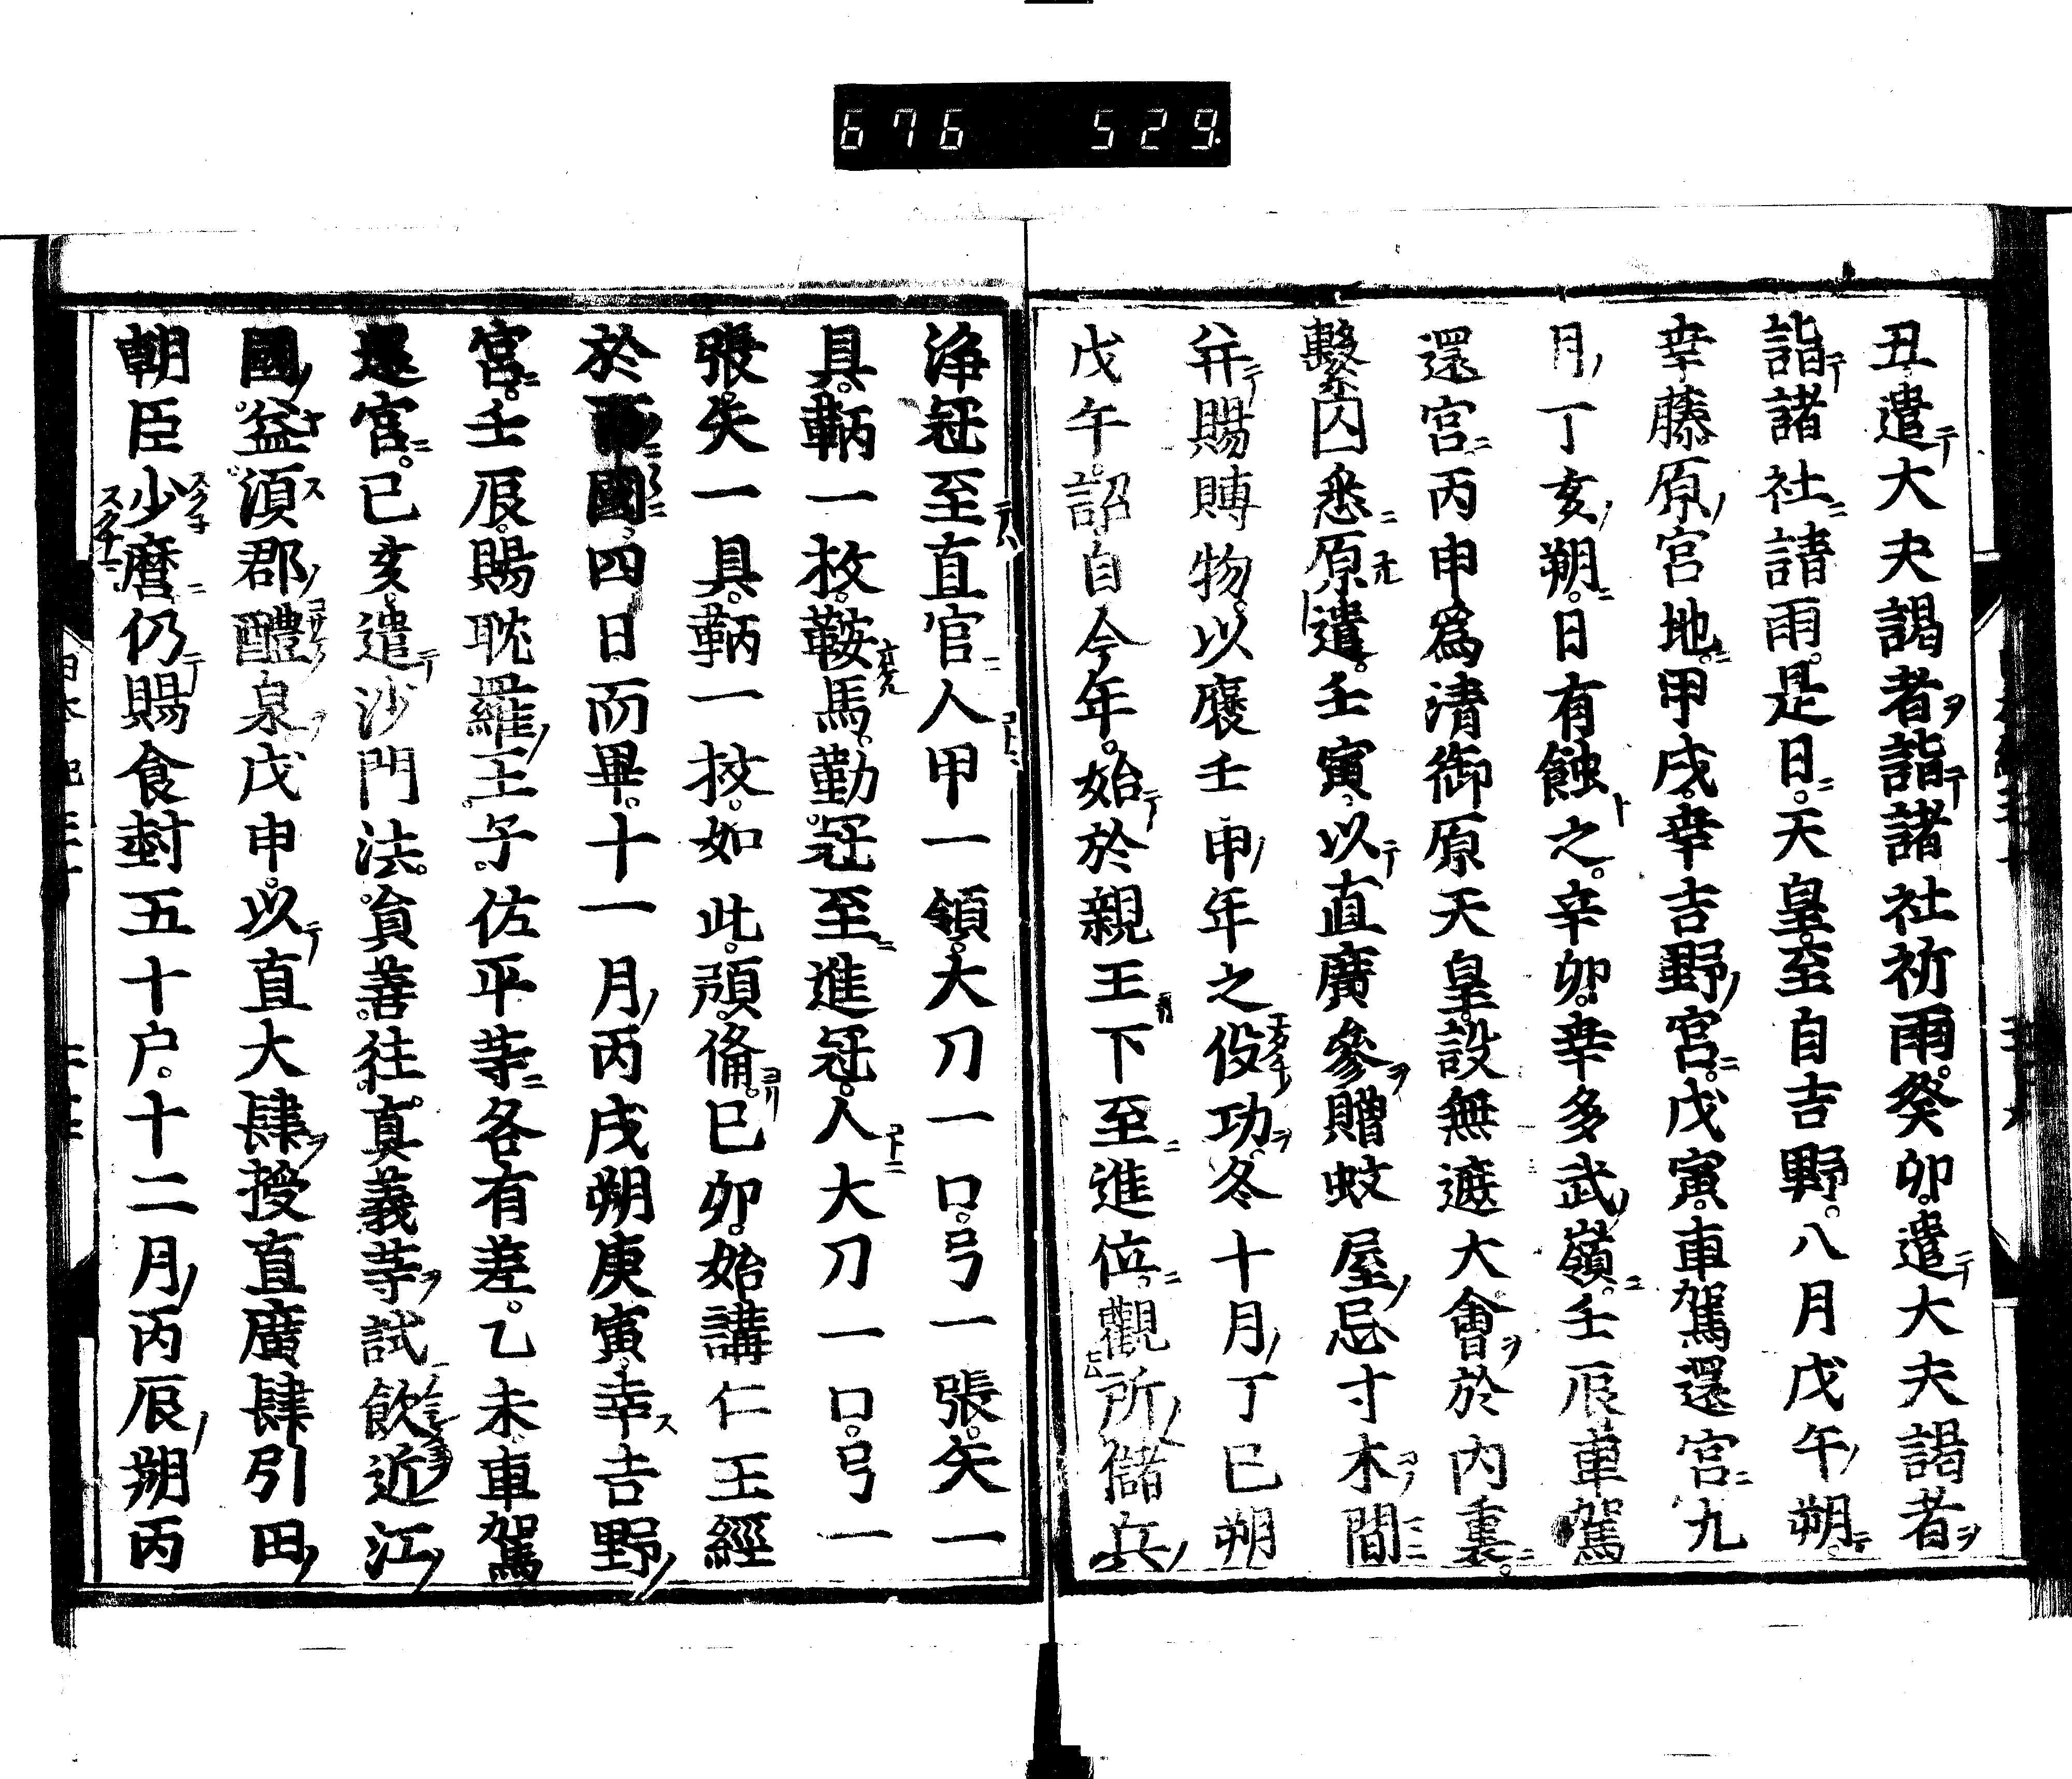 676 529
丑遣大夫謁者詣諸社祈雨癸卯遣大夫謁者
詣諸社請雨是日天皇至自吉野八月戊午朔
幸藤原宮地甲戌幸吉野宮戊寅車駕還宮九
月丁亥朔日有蝕之辛卯幸多武嶺壬辰車駕
還宮丙申爲清御原天皇設無遮大會於内裏
繫囚悉原遣壬寅以直廣參贈蚊屋忌寸木間
并賜賻物以褒壬申年之役功冬十月丁巳朔
戊午詔自今年始於親王下至進位觀所儲兵
浄冠至直官人甲一領大刀一口弓一張矢一
具鞆一枚鞍馬勤冠至進冠人大刀一口弓一
張矢一具鞆一枚如此預備已卯始講仁王經
於 國四日而畢十一月丙戌朔庚寅幸吉野
宮壬辰賜耽羅王子佐平等各有差乙未車駕
還宮己亥遣沙門法員善往真義等試飲近江
國益須郡醴泉戊申以直大肆授直廣肆引田
朝臣少麿仍賜食封五十户十二月丙辰朔丙